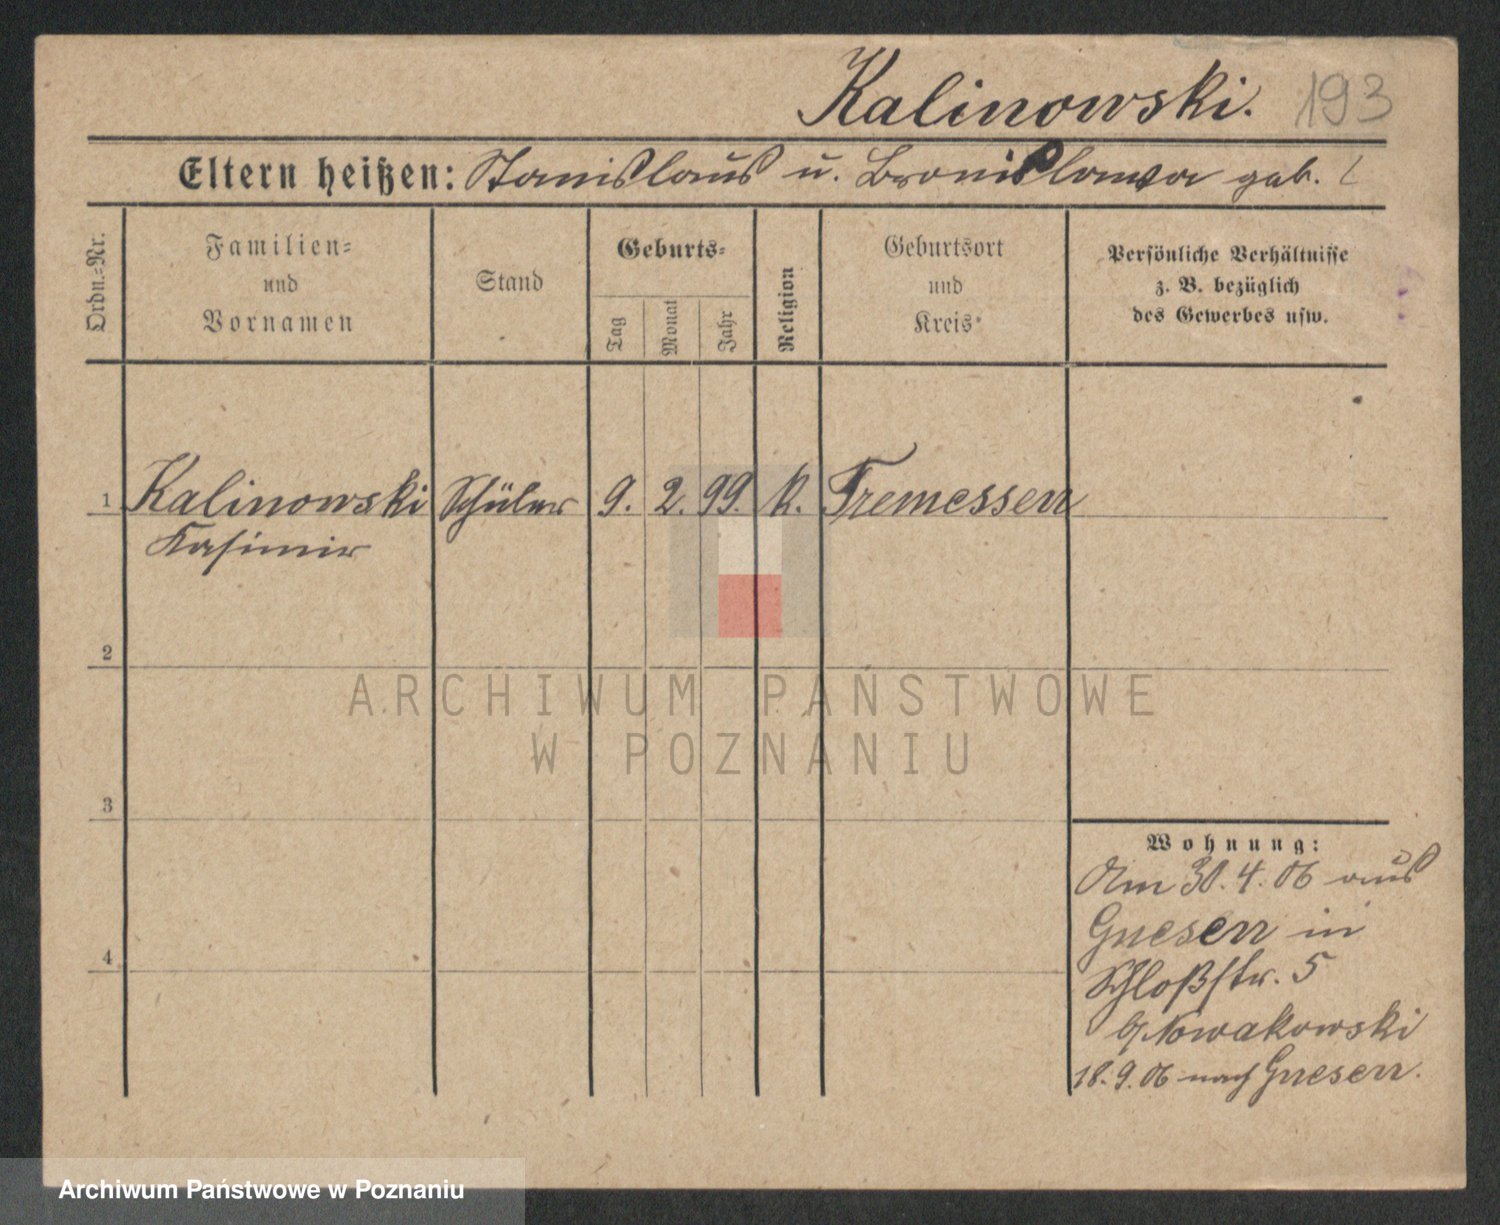 Kalinowski. 193
Eltern heißen: Stanislaus u. Bronislawa geb.
Ordn.=Nr.
Familien=
und
Vornamen
Stand
Geburts=
Tag
Monat
Jahr
Religion
Geburtsort
und
Kreis
Persönliche Verhältnisse
z. B. bezüglich
des Gewerbes usw.
1 Kalinowski Schüler 9. 2. 99. k. Tremessen
Kasimir
2
ARCHIWUM PAŃSTWOWE
W POZNANIU
3
Wohnung:
Am 30.4.06 aus
Gnesen in
4
Schloßstr. 5
b/Nowakowski
18.9.06 nach Gnesen.
Archiwum Państwowe w Poznaniu